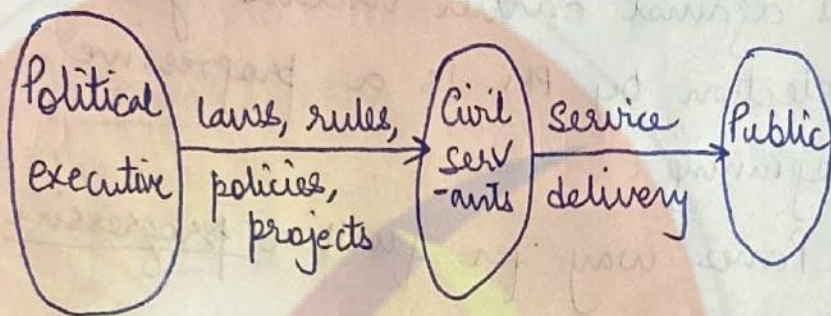 Political
executive
laws, rules,
policies,
projects
Civil
serv
-ants
service
delivery
Public